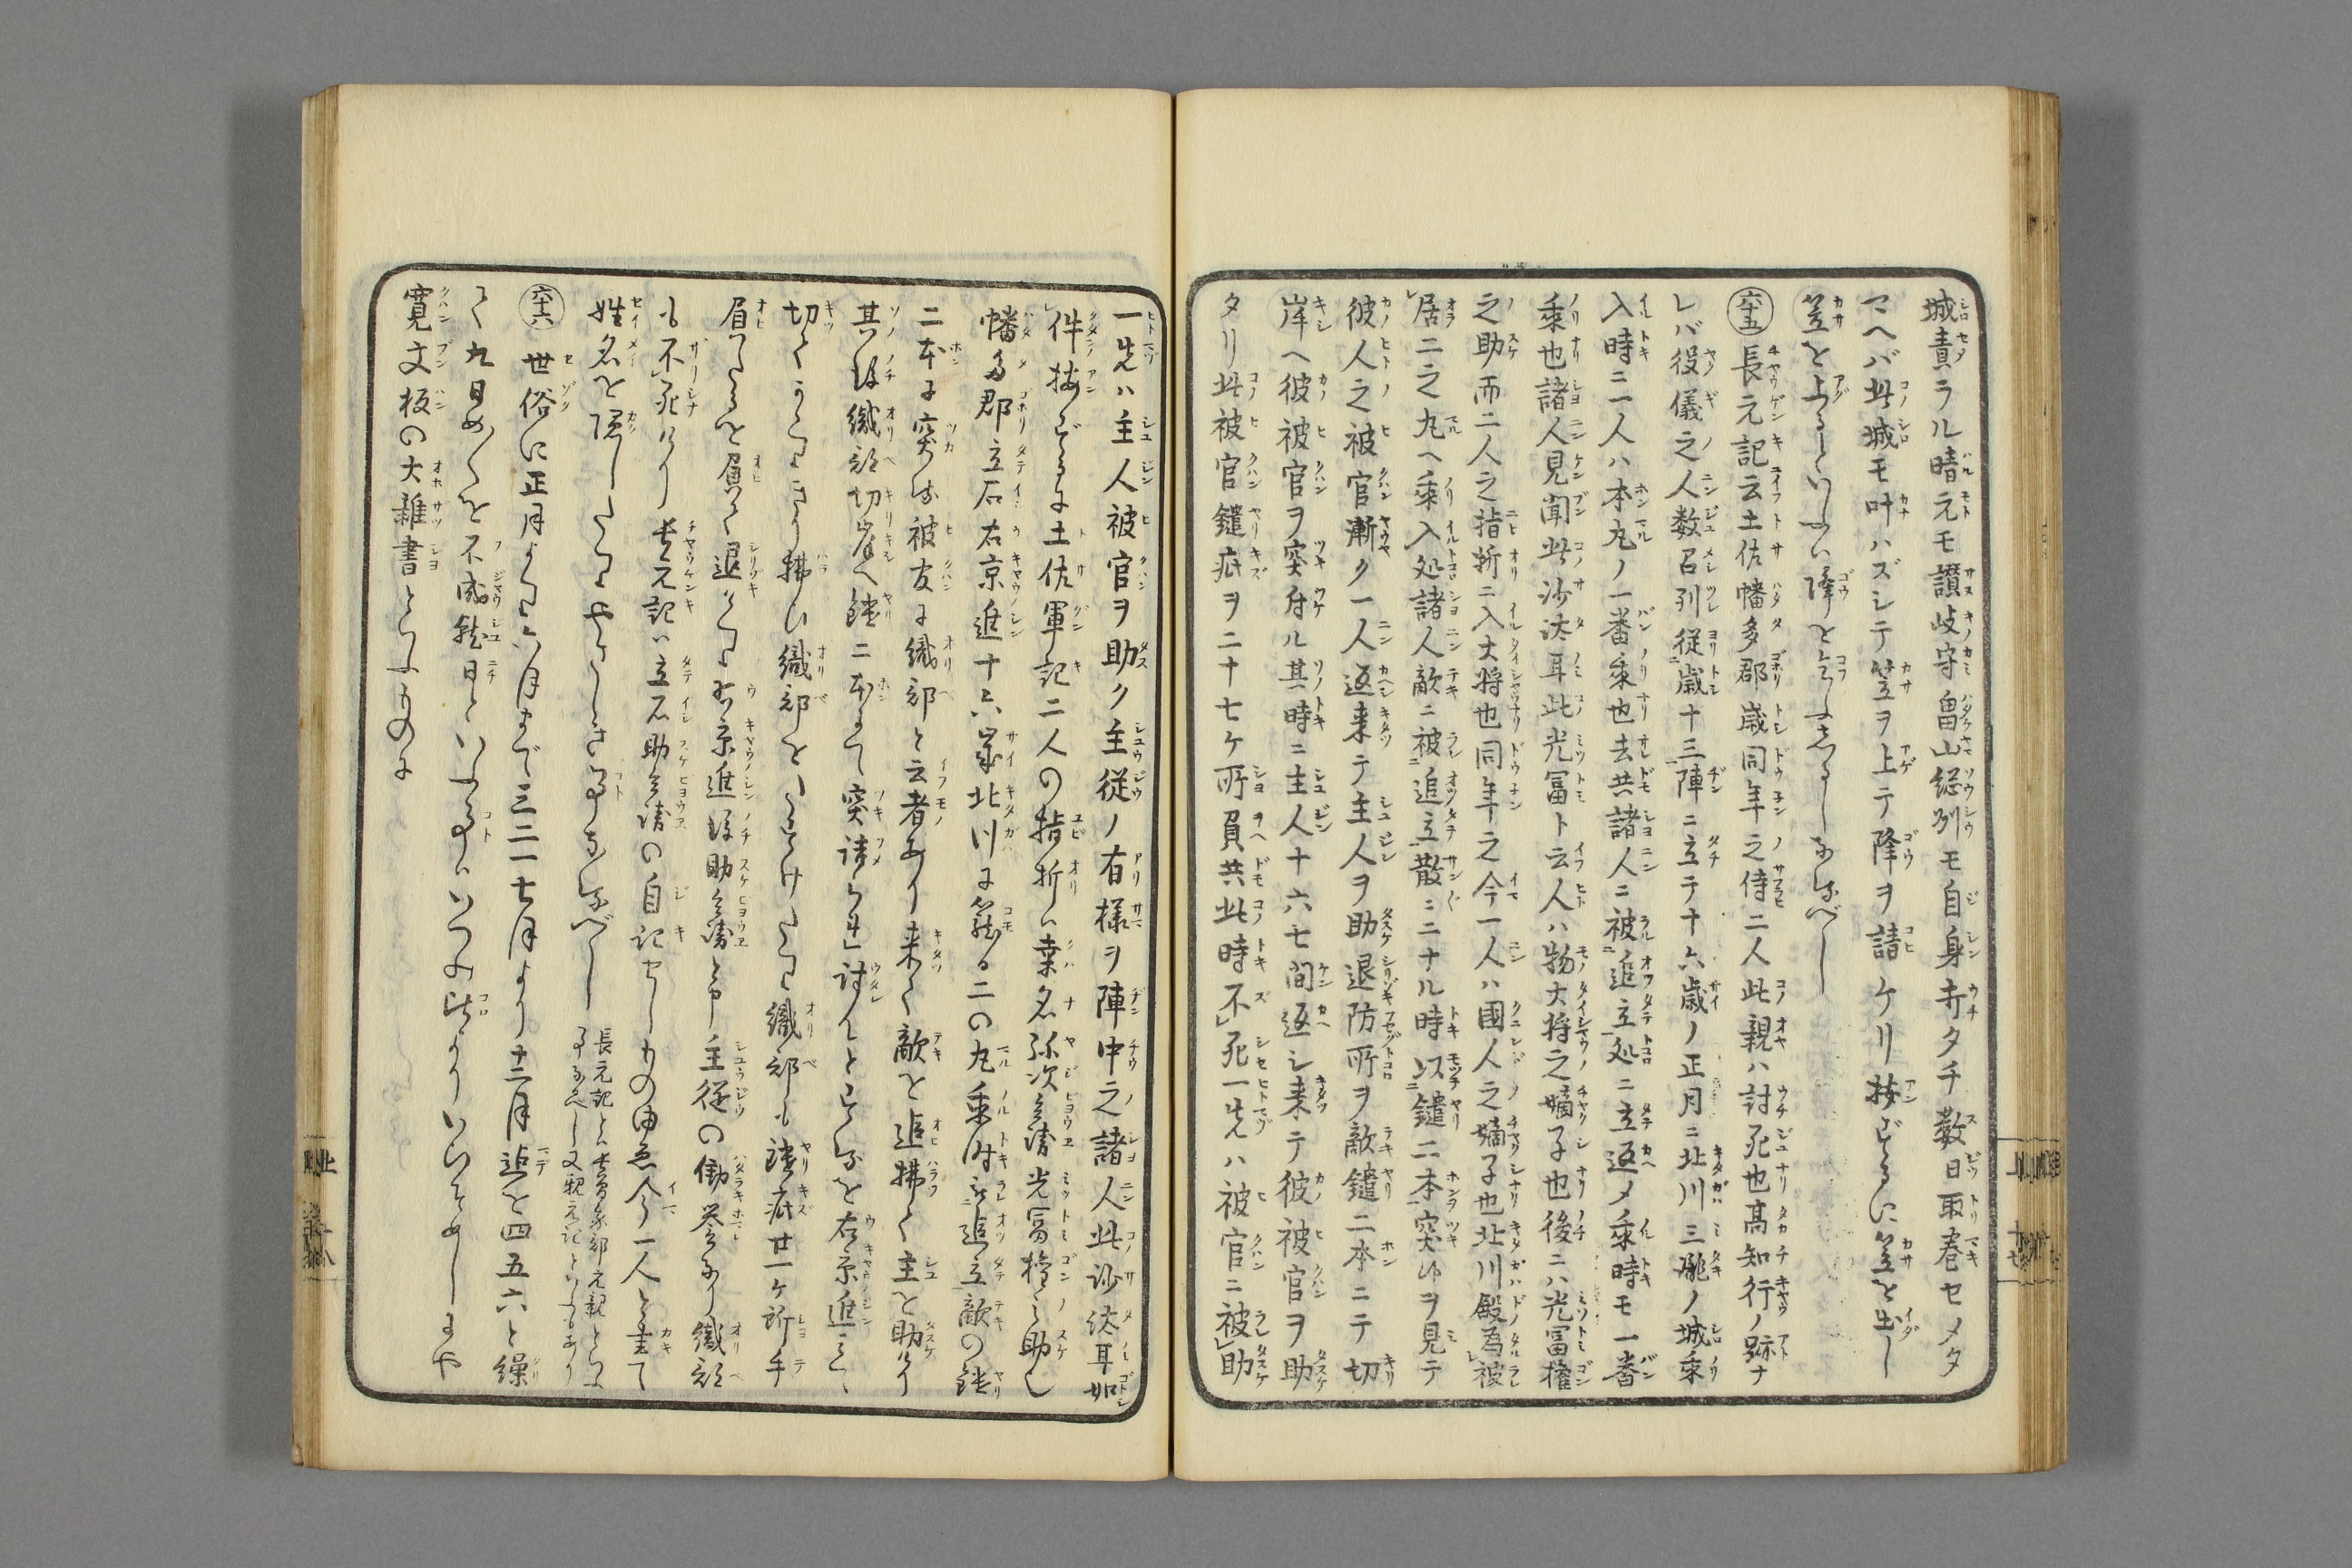 城責ラル晴元モ讃岐守畠山総州モ自身寄タチ数日取巻セメタ
マヘバ此城モ叶ハズシテ笠ヲ上テ降ヲ請ケリ按ずるに笠を出し
笠を上るといふハ降を乞ふ志るしなるべし
六十五 長元記云土佐幡多郡歳同年之侍二人此親ハ討死也高知行ノ跡ナ
レバ役儀之人数召列従歳十三陣ニ立テ十六歳ノ正月ニ北川三瀧ノ城乗
入時ニ一人ハ本丸ノ一番乗也去共諸人ニ被追立処ニ立返メ乗時モ一番
乗也諸人見聞此沙汰耳此光冨ト云人ハ物大将之嫡子也後ニハ光冨権
之助而二人之指折ニ入大将也同年之今一人ハ國人之嫡子也北川殿為被
居二之丸ヘ乗入処諸人敵ニ被追立散ニニナル時以鑓二本突伏ヲ見テ
彼人之被官漸ク一人返来テ主人ヲ助退防所ヲ敵鑓二本ニテ切
岸ヘ彼被官ヲ突付ル其時ニ主人十六七間返シ来テ彼被官ヲ助
タリ此被官鑓疵ヲ二十七ケ所負共此時不死一先ハ被官ニ被助
一先ハ主人被官ヲ助ク主従ノ有様ヲ陣中之諸人此沙汰耳如
件按ずるに土佐軍記二人の指折ハ桒名弥次兵衛光冨権之助也
幡多郡立石右京進十六歳北川に籠る二の丸乗時被追立敵の鑓
二本に突る被官に織部と云者あり来て敵を追拂て主を助けり
其後織部切岸へ鑓二本にて突詰られ討んとするを右京進
切てきり拂ひ織部をたすけたり織部も鑓疵廿一ケ所手
負たるを負て退けり右京進後助兵衛と申主従の働誉あり織部
も不死けり長元記ハ立石助兵衛の自記せしもの由ゑ今一人と書て
姓名を隠したりやさしき事なるべし 長元記とハ長曽我部元親といふ
事なるべし又親元記といふもあり
六十六 世俗に正月より六月まで三二一七月より十二月迄を四五六と繰
て九日めを不成就日といふ事ハいつの比よりいひそめしにや
寛文板の大雑書といふものに